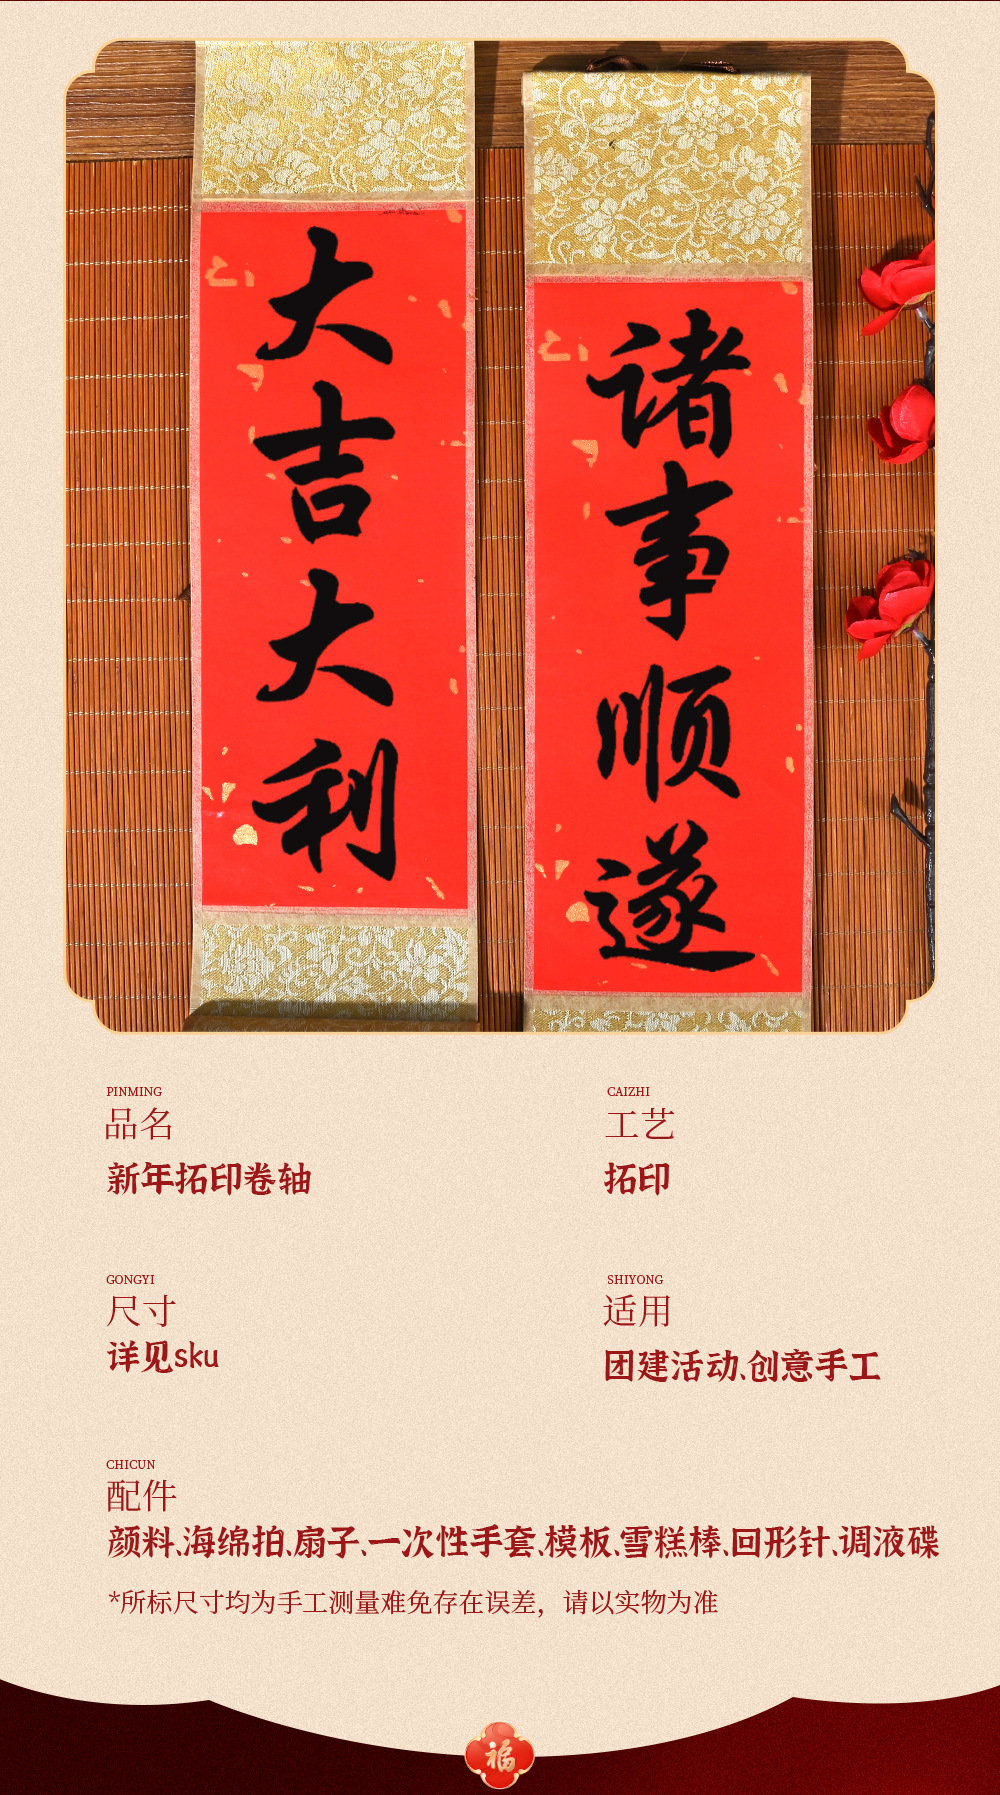 大吉大利
诸事顺遂
PINMING
品名
新年拓印卷轴
CAIZHI
工艺
拓印
GONGYI
尺寸
详见sku
SHIYONG
适用
团建活动、创意手工
CHICUN
配件
颜料、海绵拍、扇子、一次性手套、模板、雪糕棒、回形针、调液碟
*所标尺寸均为手工测量难免存在误差，请以实物为准
福